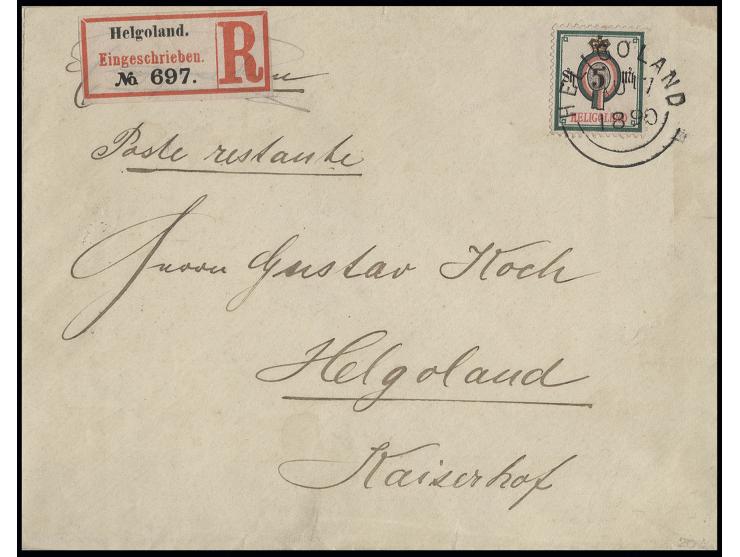 Helgoland.
Eingeschrieben.
No. 697.
R
5
HELIGOLAND
HELIGOLAND
1890
Poste restante
Herrn Gustav Koch
Helgoland
Kaiserhof